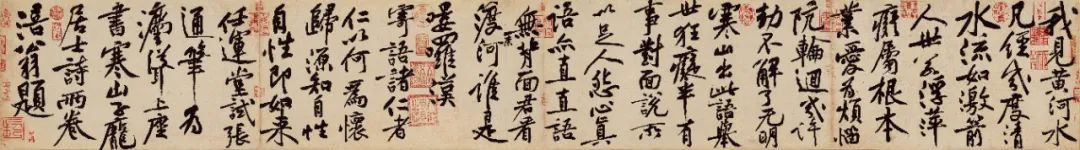 我見黃河水
凡經幾度清
水流如激箭
人世若浮萍
癡屬根本
業愛為煩惱
阬輪迴幾許
劫不解了无明
寒山出此語舉
世狂癡半有
事對面說所
以足人怨心真
語亦直直語
無背面君看
渡奈河誰是
嘍羅漢
寄語諸仁者
仁以何為懷
歸源知自性
自性即如來
任運堂試張
通筆為
灋聳上座
書寒山子龐
居士詩兩卷
涪翁題